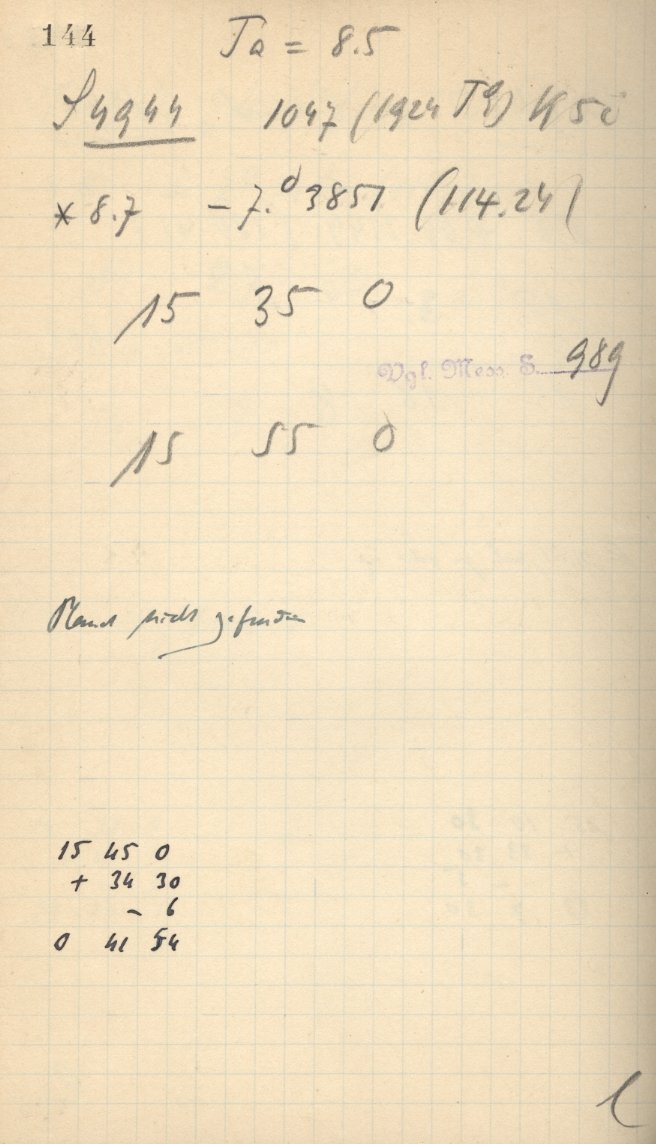 144
Ta = 8.5
S 4944 1047 (1924 TG) K 50
* 8.7 - 7.ᵈ 3857 (114.24)
15 35 0
Vgl. Mess. S. 989
15 55 0
nicht gefunden
15 45 0
+ 34 30
- 6
0 41 54